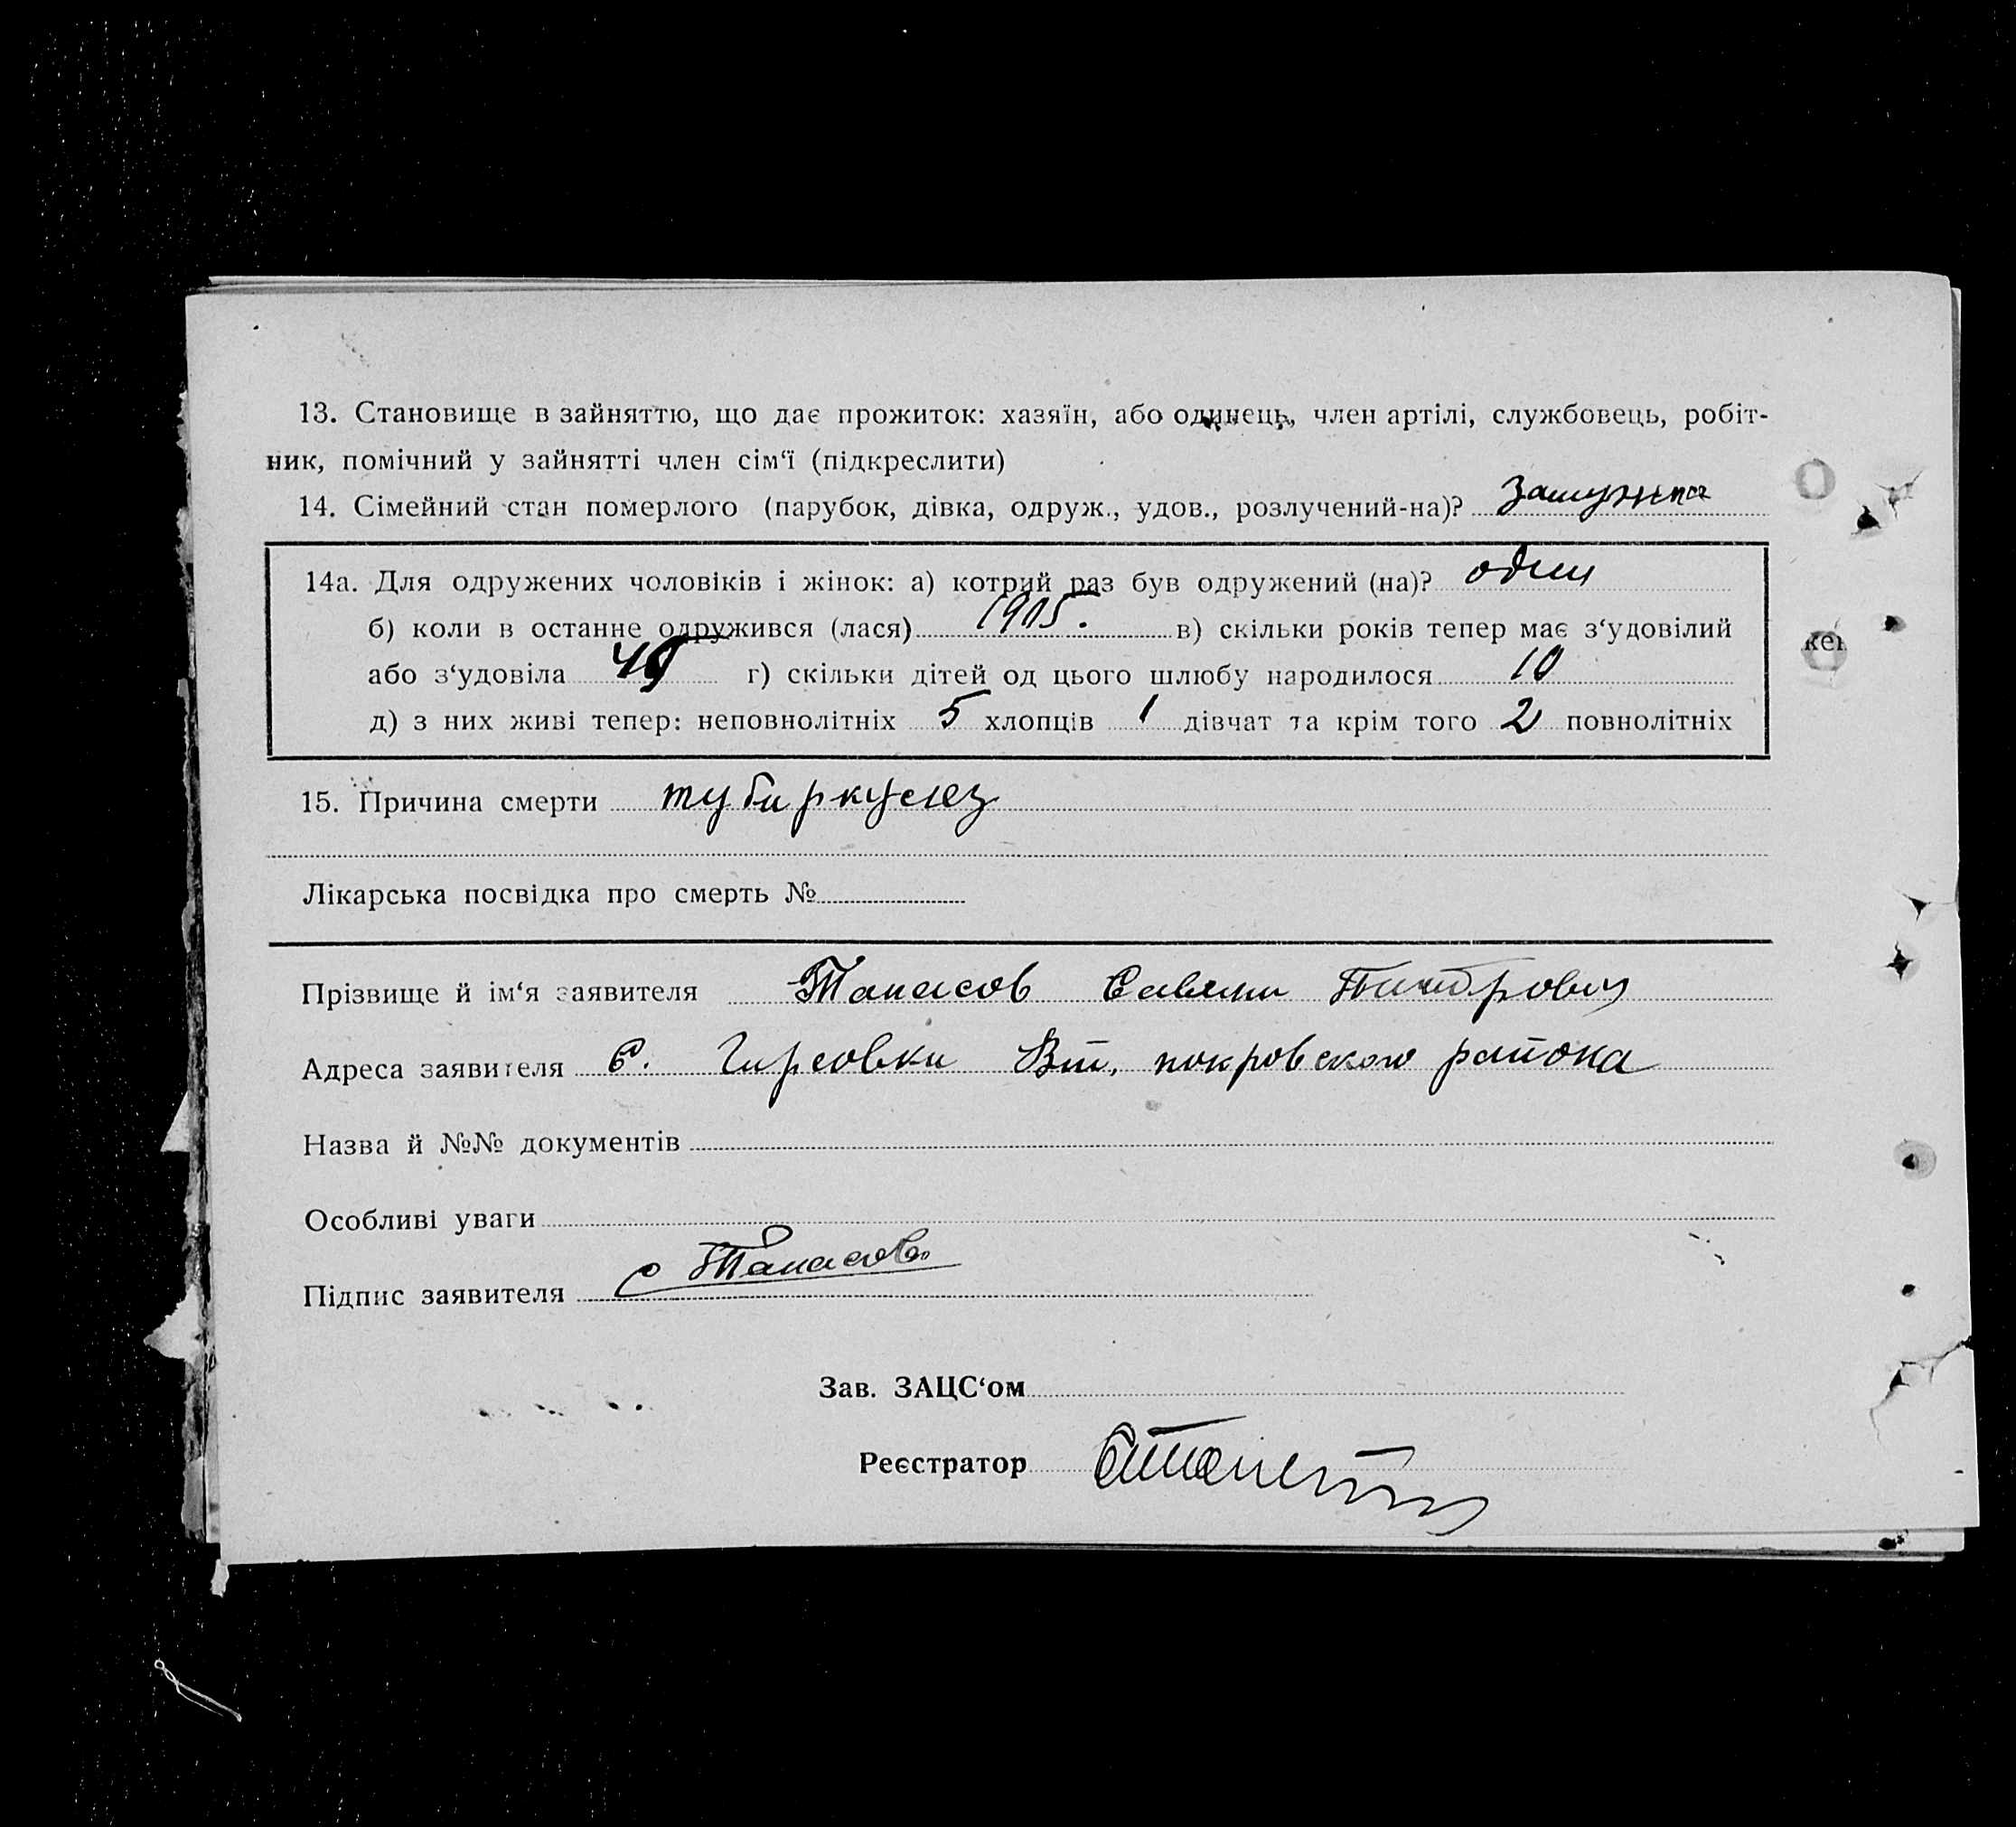 13. Становище в зайняттю, що дає прожиток: хазяїн, або одинець, член артілі, службовець, робіт-
ник, помічний у зайнятті член сім‘ї (підкреслити)
14. Сімейний стан померлого (парубок, дівка, одруж., удов., розлучений-на)? замужна
14а. Для одружених чоловіків і жінок: а) котрий раз був одружений (на)? один
б) коли в останне одружився (лася) 1905. в) скільки років тепер має з‘удовілий
або з‘удовіла г) скільки дітей од цього шлюбу народилося 10
д) з них живі тепер: неповнолітніх 5 хлопців 1 дівчат та крім того 2 повнолітніх
15. Причина смерти
Лікарська посвідка про смерть №
Прізвище й ім‘я заявителя Танасов
Адреса заявителя С. Гирсовки покровского района
Назва й №№ документів
Особливі уваги
Підпис заявителя С Танасов
Зав. ЗАЦС‘ом
Реєстратор
кен